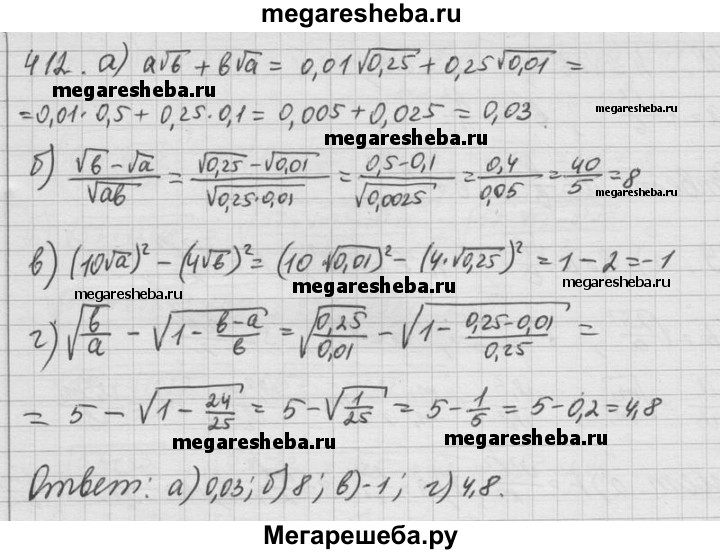 megaresheba.ru
412. а) a√b + b√a = 0,01√0,25 + 0,25√0,01 =
megaresheba.ru megaresheba.ru
= 0,01 · 0,5 + 0,25 · 0,1 = 0,005 + 0,025 = 0,03
megaresheba.ru
б) (√b − √a)/√(ab) = (√0,25 − √0,01)/√(0,25·0,01) = (0,5−0,1)/√0,0025 = 0,4/0,05 = 40/5 = 8
megaresheba.ru
в) (10√a)² − (4√b)² = (10·√0,01)² − (4·√0,25)² = 1 − 2 = −1
megaresheba.ru megaresheba.ru megaresheba.ru
г) √(b/a) − √(1 − (b−a)/b) = √(0,25/0,01) − √(1 − (0,25−0,01)/0,25) =
= 5 − √(1 − 24/25) = 5 − √(1/25) = 5 − 1/5 = 5 − 0,2 = 4,8
megaresheba.ru megaresheba.ru
Ответ: а) 0,03; б) 8; в) -1; г) 4,8.
Мегарешеба.ру